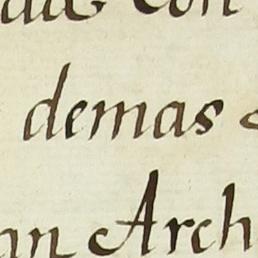 con
demas
an Arch